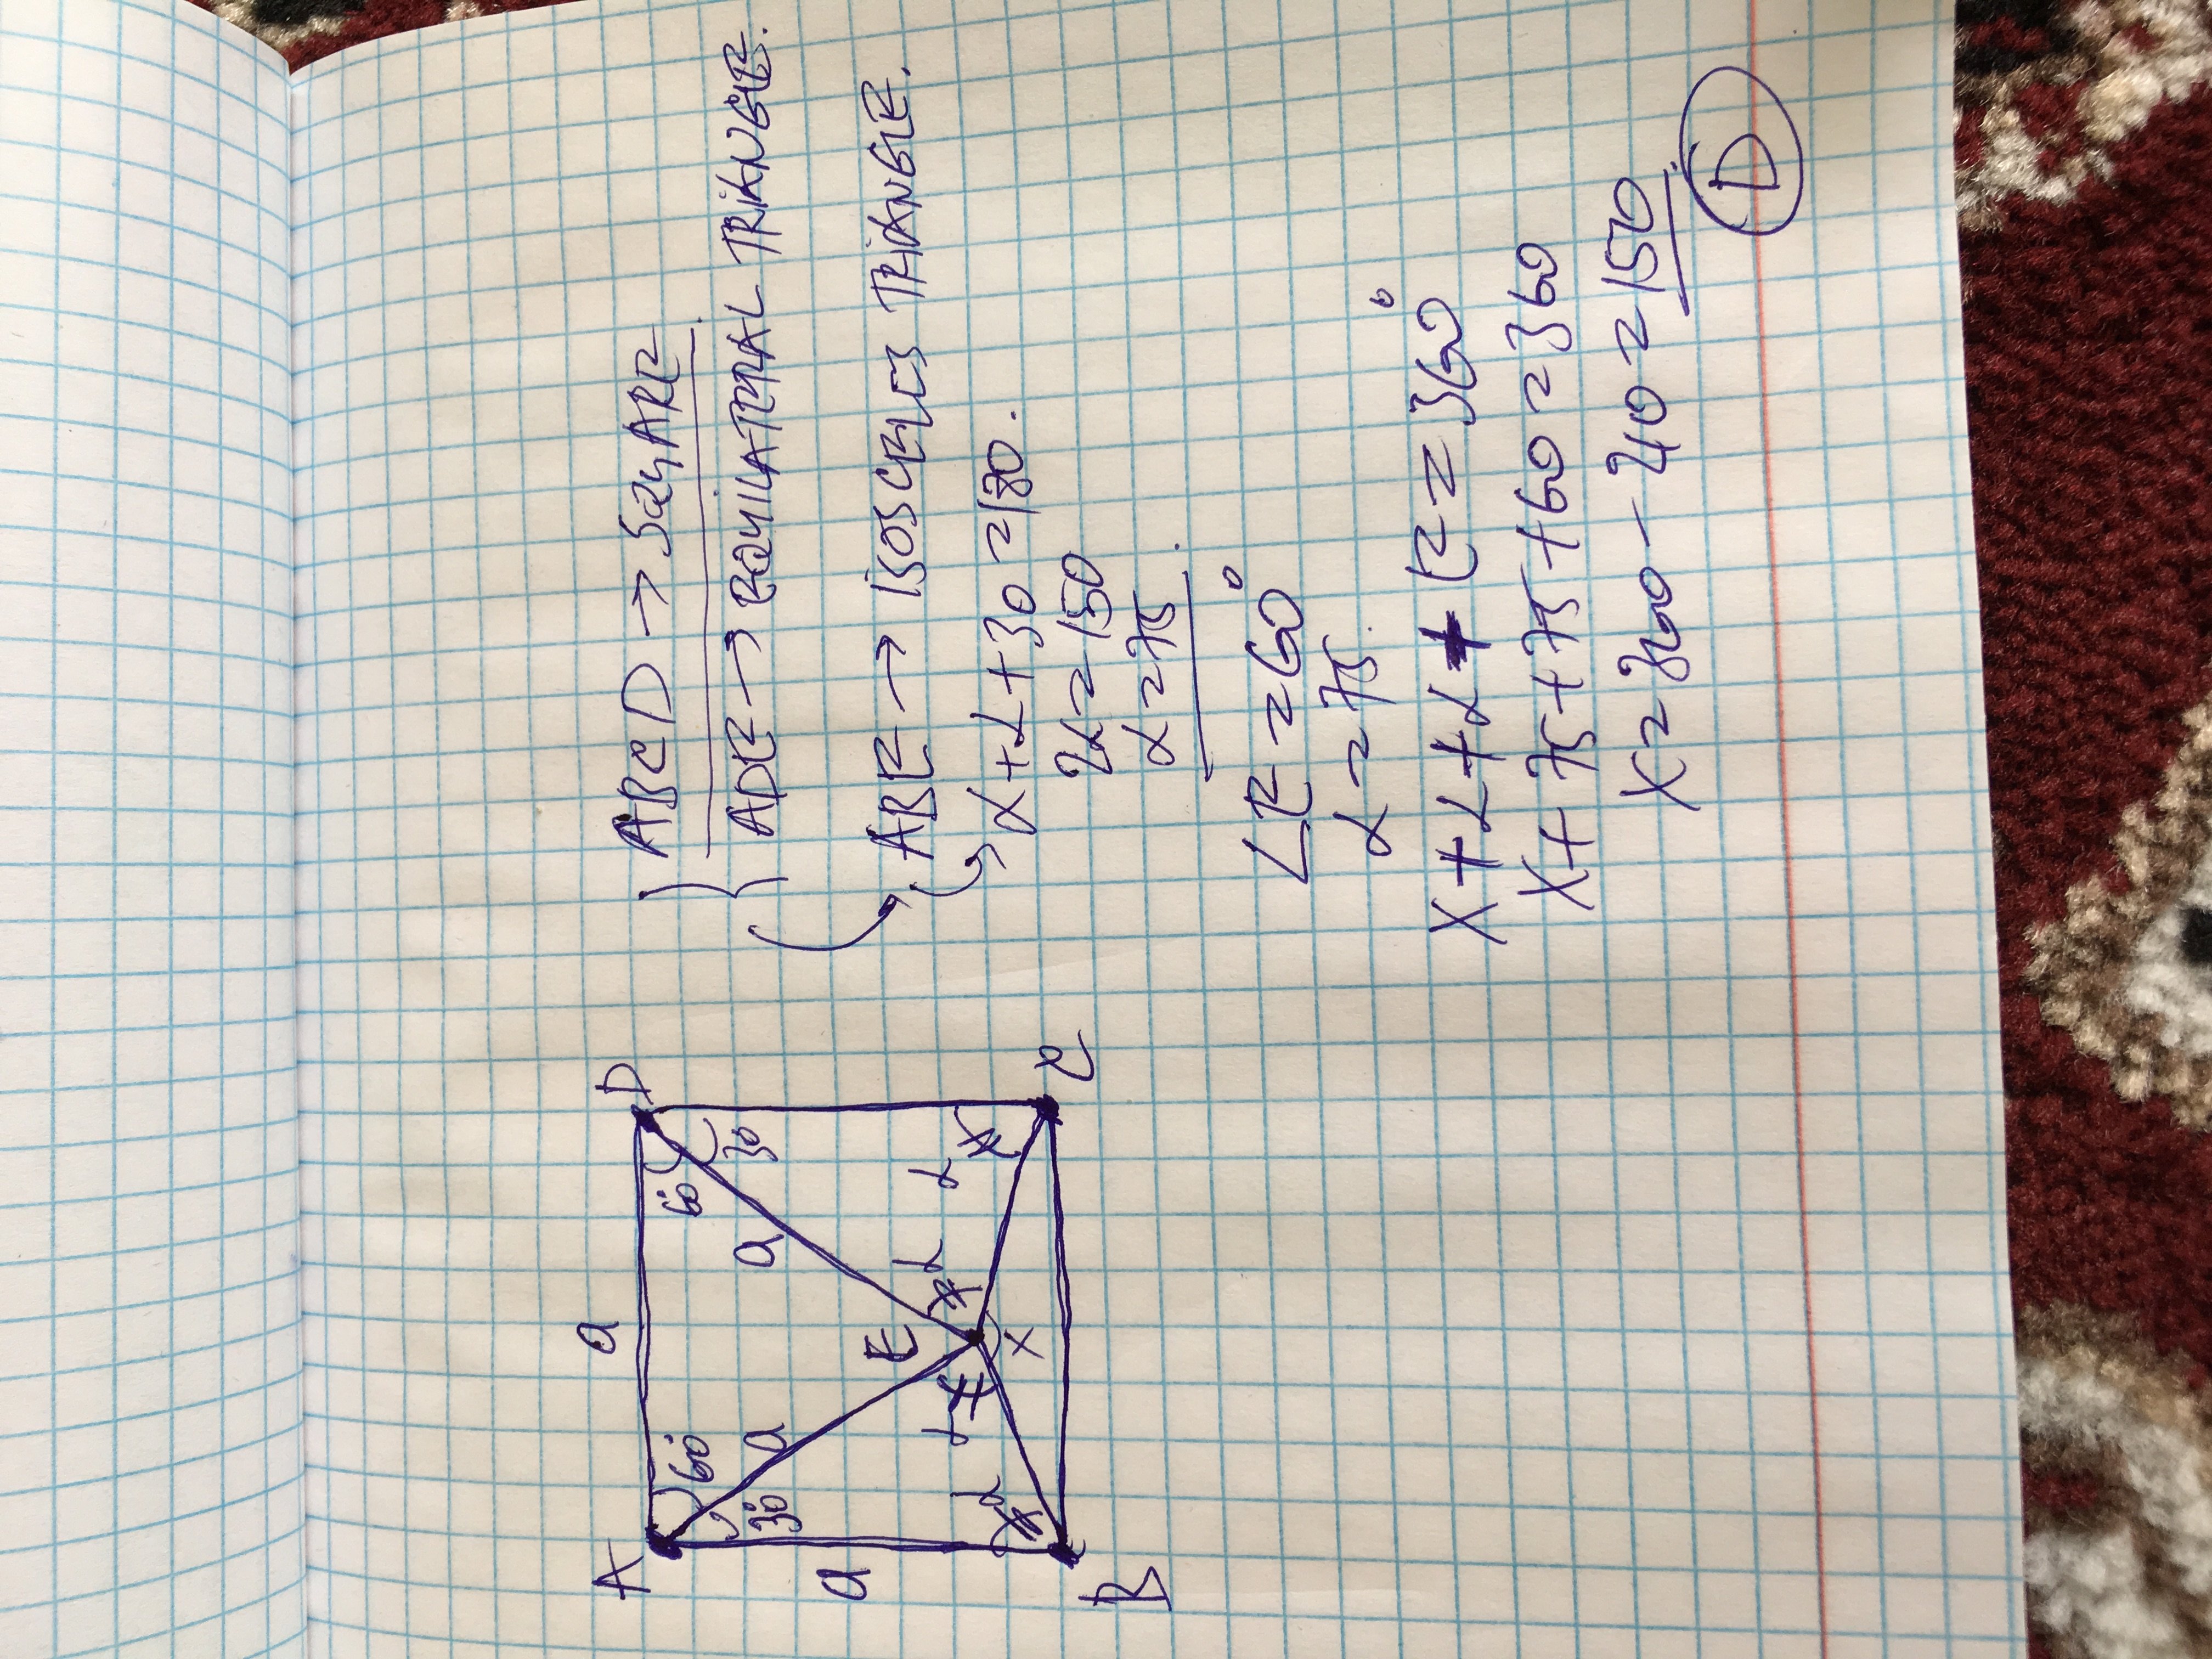 A a D
60° 60°
30° 30
a a a
E
α α
α α
x
B C
ABCD → SQUARE
ADE → EQUILATERAL TRIANGLE.
ABE → ISOSCELES TRIANGLE.
α + α + 30 = 180.
2α = 150
α = 75.
∠E = 60°
α = 75.
x + α + α + E = 360°
x + 75 + 75 + 60 = 360
x = 360 - 210 = 150.
D